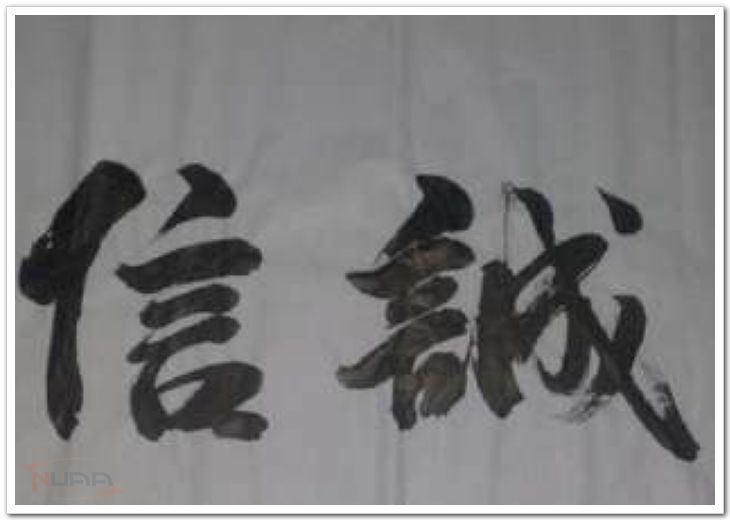 誠信
NUAA